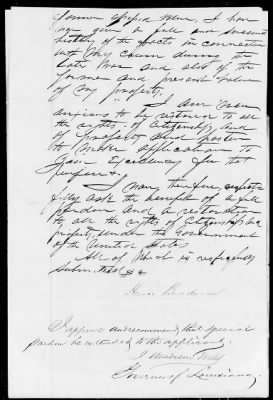 former specified value, I have
now given a full and succinct
history of the facts in connection
with my course during the
late War and also of the
former and present value
of my property.
I am now
anxious to be restored to all
the rights of Citizenship and
of property and hasten
to make application to
your Excellency for that
purpose.
I now, therefore, respect-
fully ask the benefit of a full
pardon and a restoration
to all the rights of Citizenship &
property, under the Government
of the United States.
All of which is respectfully
submitted &c
I approve and recommend, that special
pardon be extended to the applicant.
J Madison Wells
Governor of Louisiana